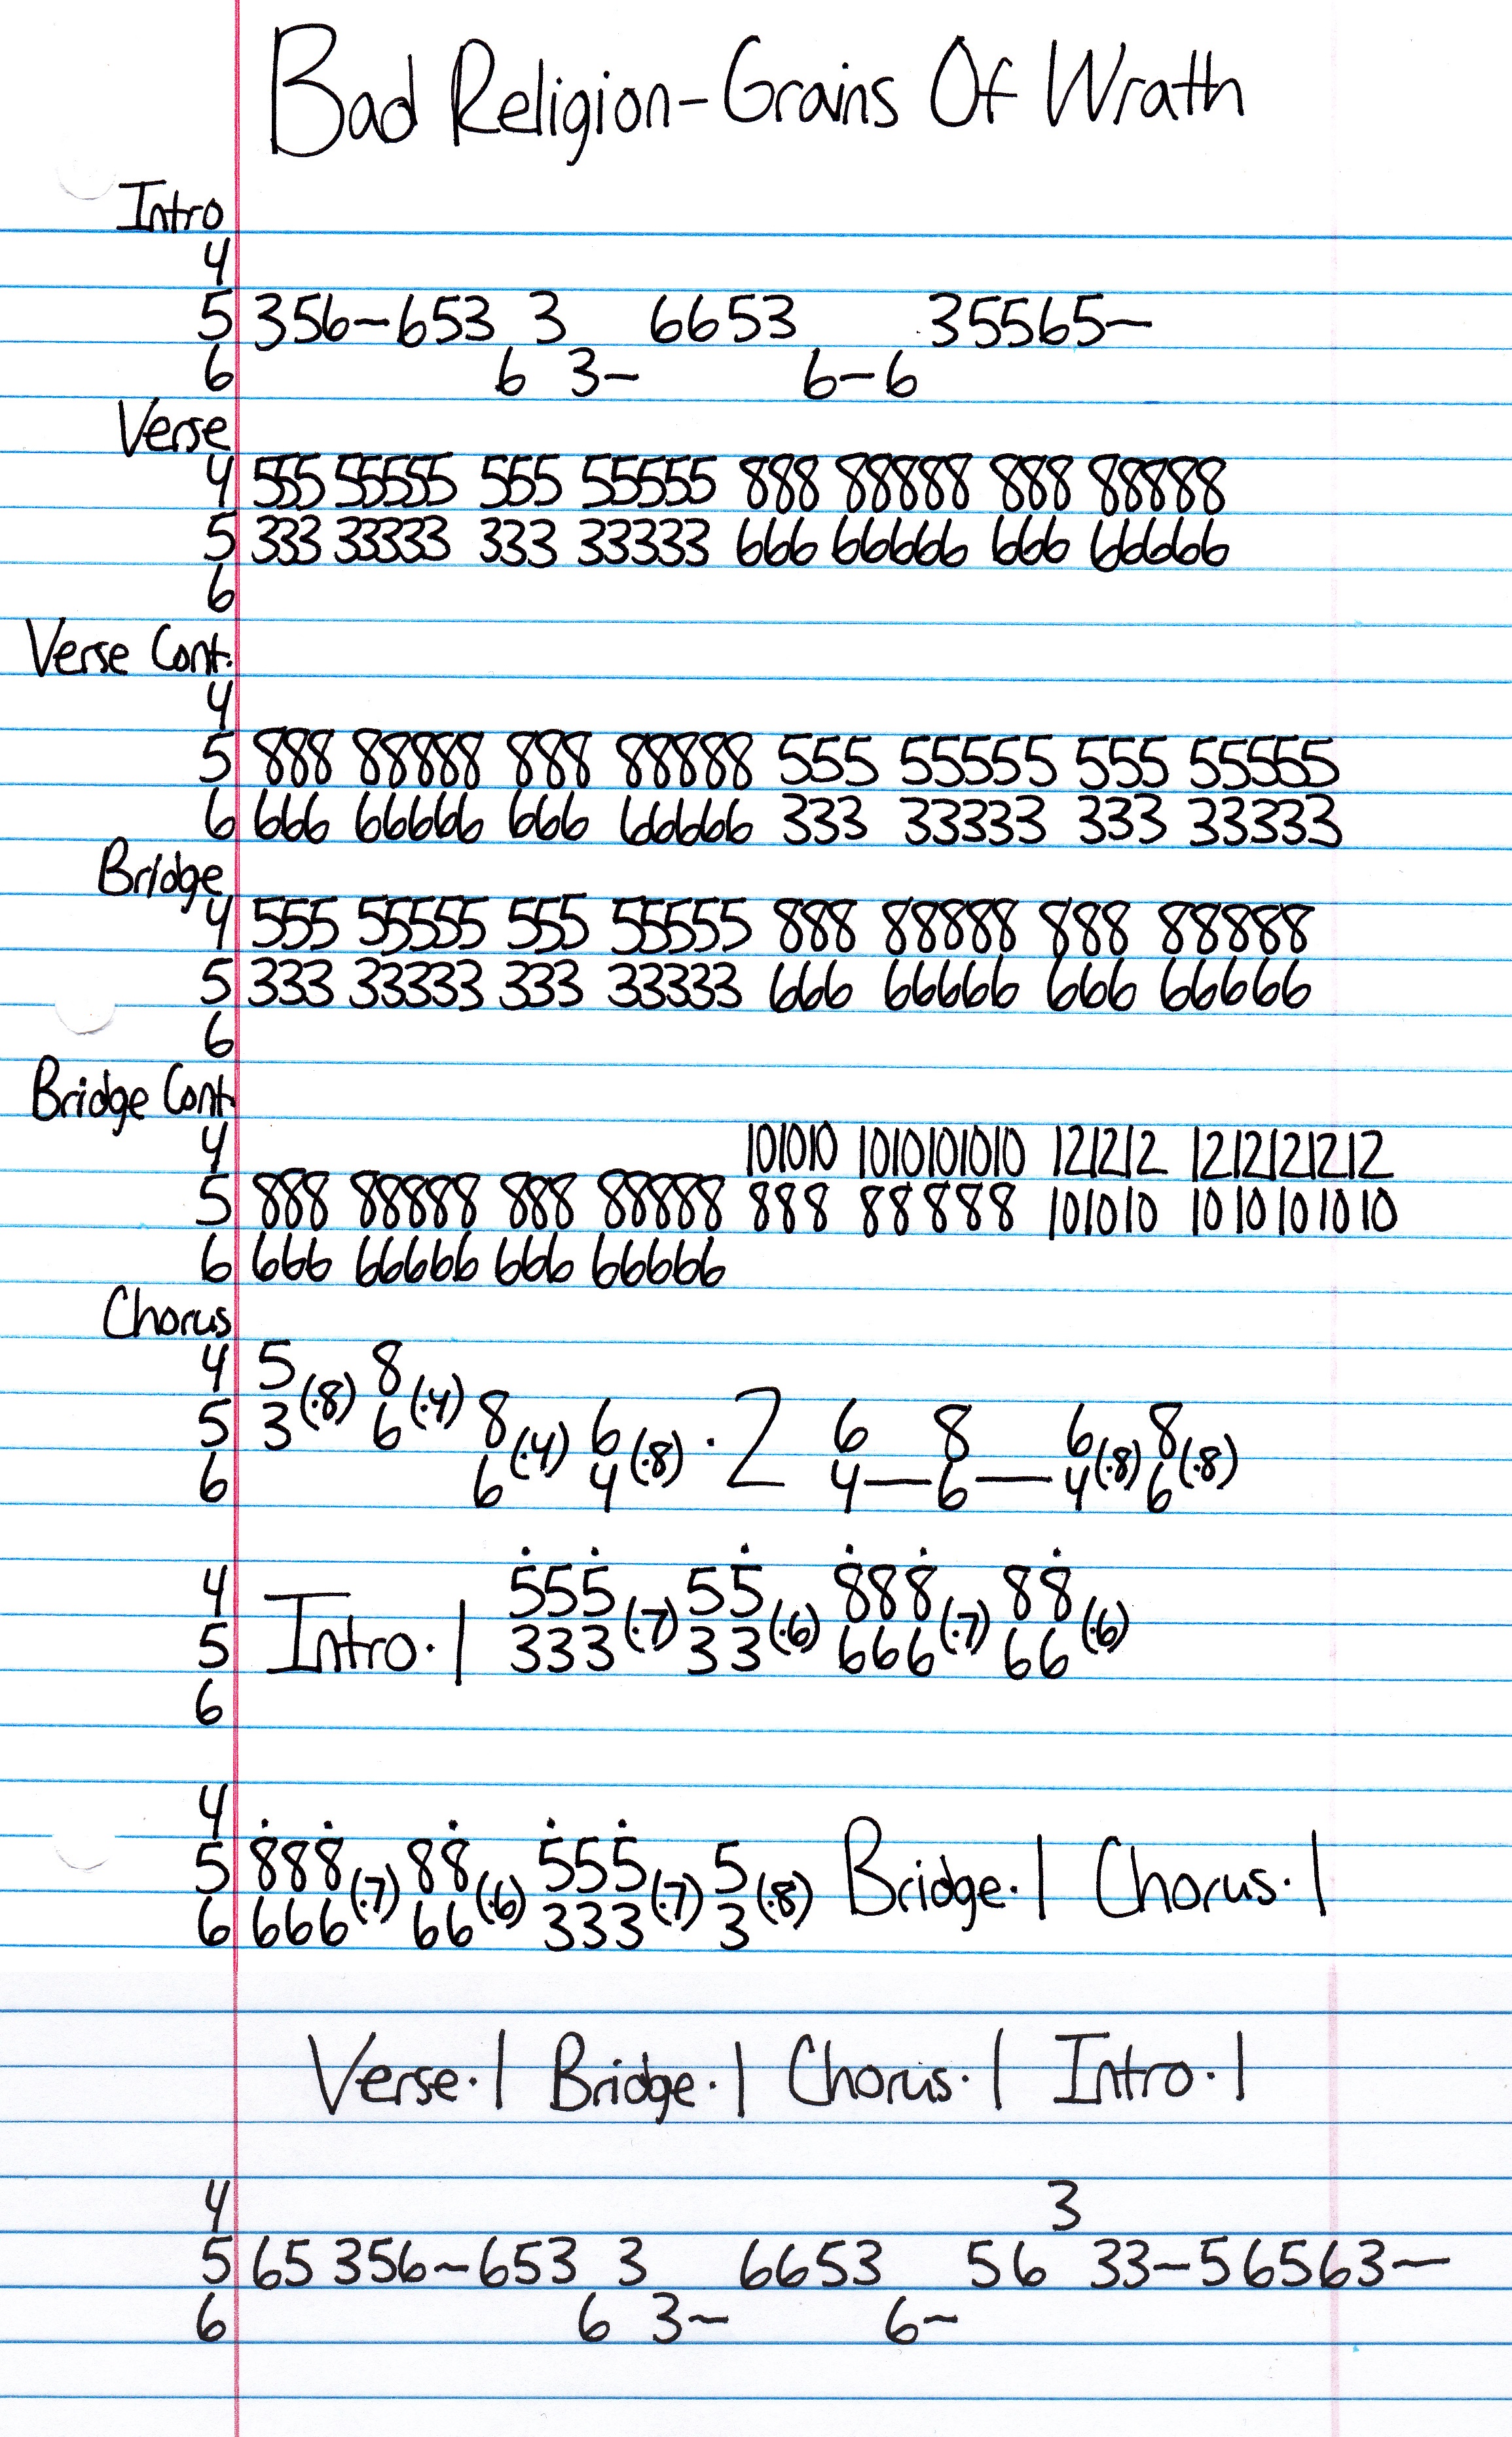 Bad Religion-Grains Of Wrath
Intro
4
5 356~653 3 6653 35565~
6 6 3~ 6~6
Verse
4 555 55555 555 55555 888 88888 888 88888
5 333 33333 333 33333 666 66666 666 66666
6
Verse Cont.
4
5 888 88888 888 88888 555 55555 555 55555
6 666 66666 666 66666 333 33333 333 33333
Bridge
4 555 55555 555 55555 888 88888 888 88888
5 333 33333 333 33333 666 66666 666 66666
6
Bridge Cont.
4 101010 1010101010 121212 1212121212
5 888 88888 888 88888 888 88888 101010 1010101010
6 666 66666 666 66666
Chorus
4 5 (·8) 8 (·4)
5 3 6 8 (·4) 6 (·8) ·2 6 8 6 (·8) 8 (·8)
6 6 4 4—6—4 6
4 5̇55̇ (·7) 55̇ (·6) 8̇88̇ (·7) 88̇ (·6)
5 Intro·1 333 33 666 66
6
4
5 8̇88̇ (·7) 88̇ (·6) 5̇55̇ (·7) 5 (·8) Bridge·1 Chorus·1
6 666 66 333 3
Verse·1 Bridge·1 Chorus·1 Intro·1
4 3
5 65 356~653 3 6653 56 33~56563~
6 6 3~ 6~